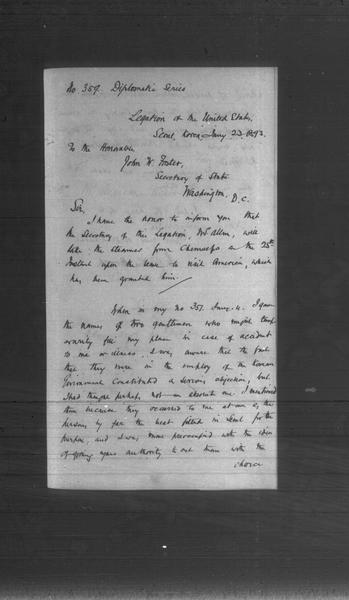 No 359. Diplomatic Series
Legation of the United States,
Seoul, Korea, Jany 23. 1893.
To the Honorable
John W. Foster,
Secretary of State
Washington, D.C.
Sir,
I have the honor to inform you that
the Secretary of this Legation, Dr Allen, will
take the steamer from Chemulpo on the 25th
instant upon the leave to visit America, which
has been granted him.
When in my No 351. Jany. 4. I gave
the names of two gentlemen who might temp-
orarily fill my place in case of accident
to me or illness. I was aware that the fact
that they were in the employ of the Korean
Government constituted a serious objection, but
I had thought perhaps, not an absolute one. I mentioned
them because they occurred to me at once as the
persons by far the best fitted in Seoul for the
purpose, and I was more preoccupied with the idea
of giving you authority to act than with the
choice